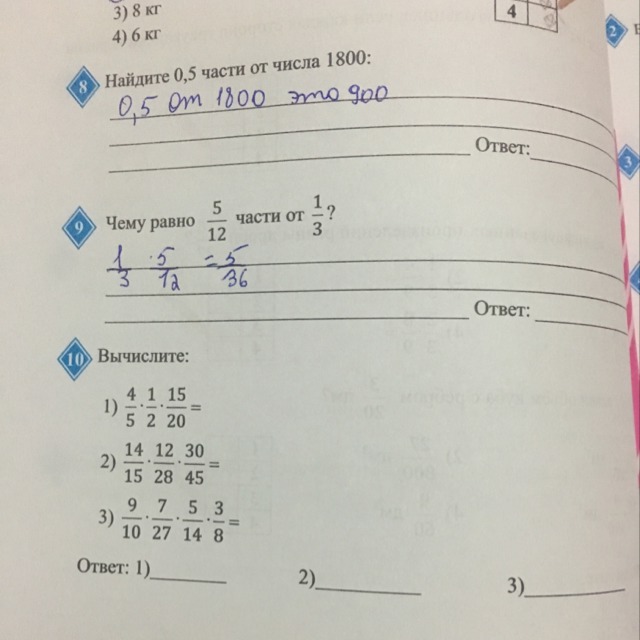 3) 8 кг
4) 6 кг
4
2
8 Найдите 0,5 части от числа 1800:
0,5 от 1800 это 900
Ответ:
3
9 Чему равно 5/12 части от 1/3?
1/3 · 5/12 = 5/36
Ответ:
10 Вычислите:
1) 4/5 · 1/2 · 15/20 =
2) 14/15 · 12/28 · 30/45 =
3) 9/10 · 7/27 · 5/14 · 3/8 =
Ответ: 1) 2) 3)